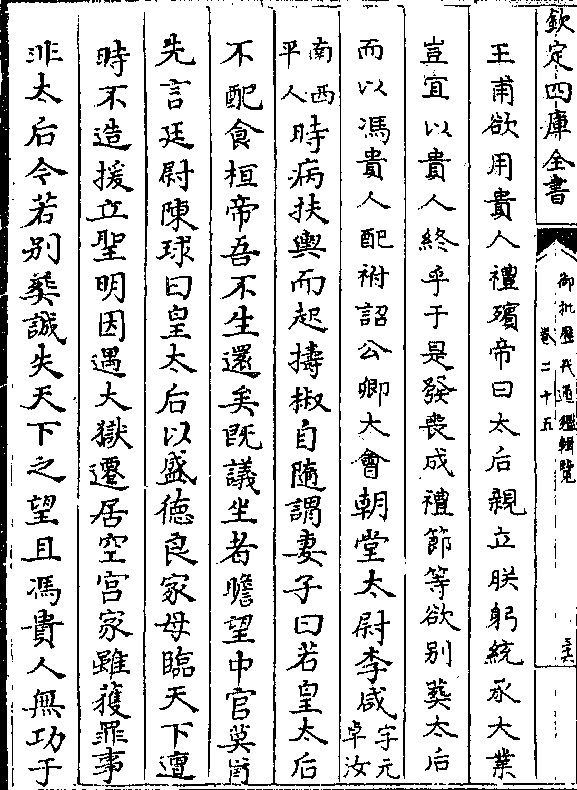 欽定四庫全書
御批歷代通鑑輯覽
卷二十五
王甫欲用貴人禮殯帝曰太后親立朕躬統承大業
豈宜以貴人終乎于是發喪成禮節等欲别葬太后
而以馮貴人配祔詔公卿大會朝堂太尉李咸字元卓汝
南西平人時病扶輿而起擣椒自隨謂妻子曰若皇太后
不配食桓帝吾不生還矣既議坐者瞻望中官莫肯
先言廷尉陳球曰皇太后以盛德良家母臨天下遭
時不造援立聖明因遇大獄遷居空宫家雖獲罪事
非太后今若别葬誠失天下之望且馮貴人無功于